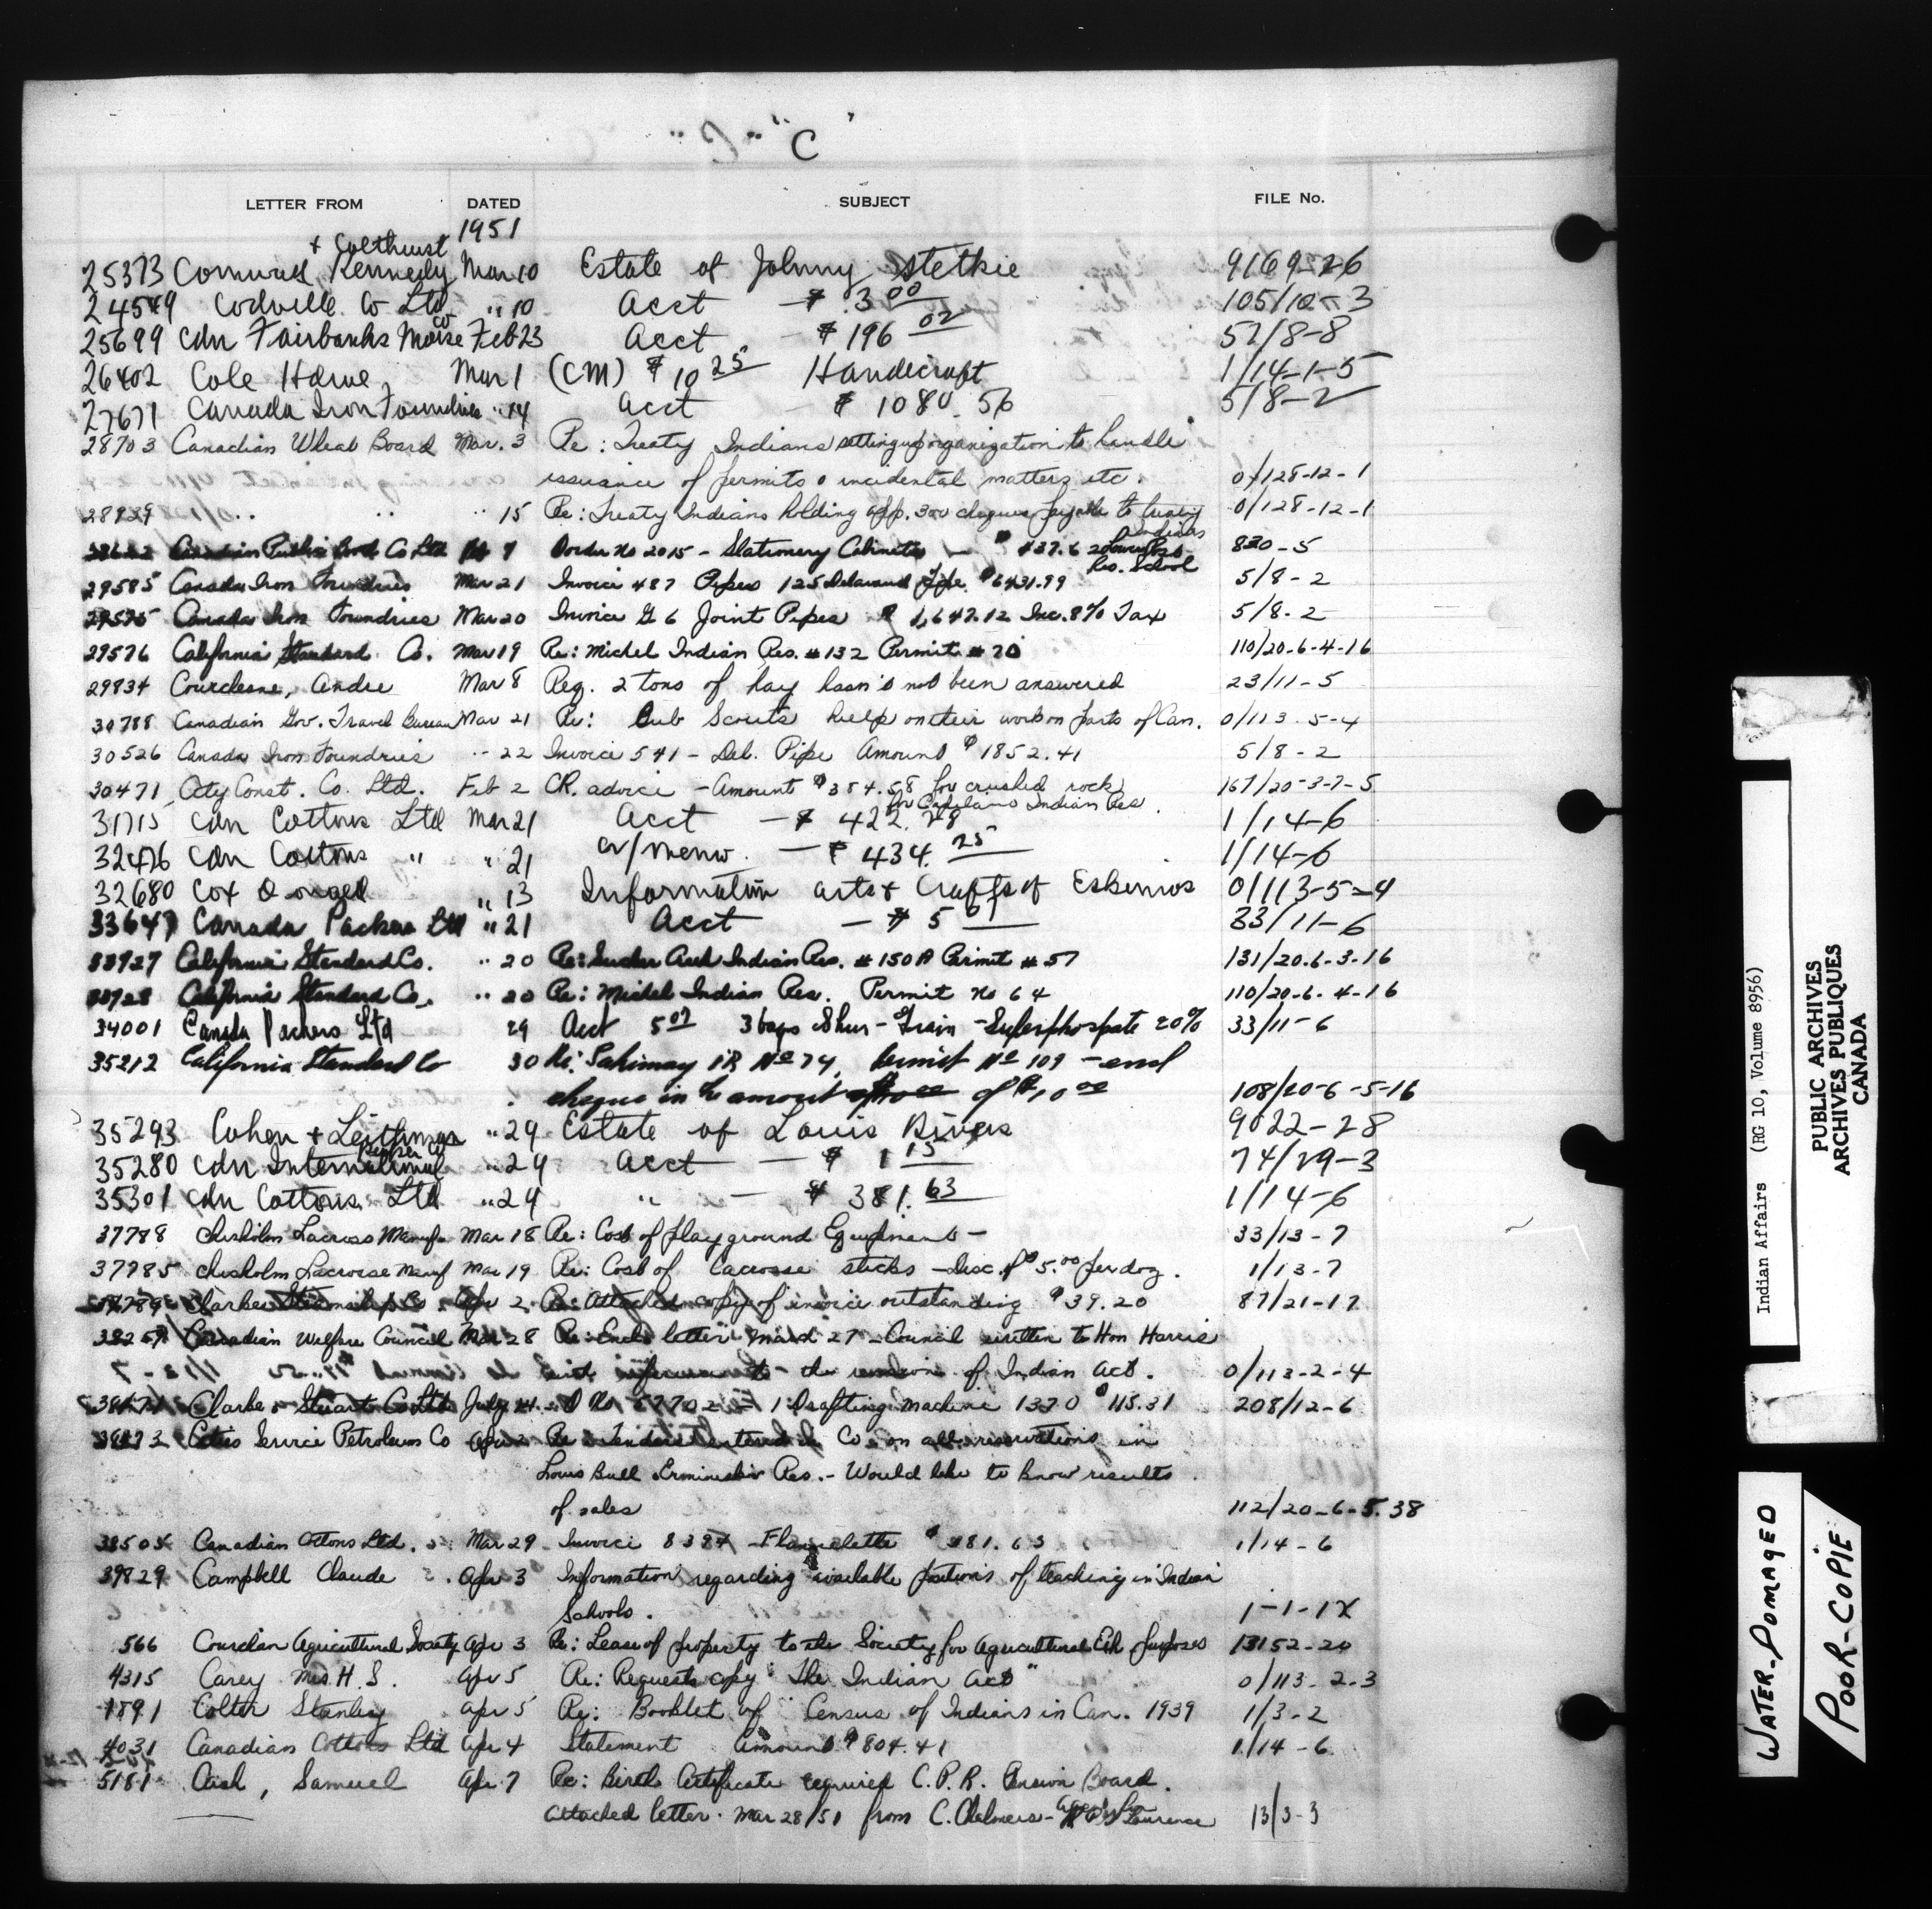 "C"
LETTER FROM DATED SUBJECT FILE No.
1951
+ Colthurst
25373 Kennedy Mar 10 Estate of Johnny Stetkie 9169-26
24549 Codville Co Ltd " 10 Acct — $ 3 00 105/10-3
25699 Cdn Fairbanks Morse Co Feb 23 Acct — $ 196 02 52/8-8
26402 Cole Mar 1 (CM) $ 10 25 Handicraft 1/14-1-5
27671 Canada Iron Foundries " 14 Acct — $ 1080.56 5/8-2
28703 Canadian Wheat Board Mar. 3 Re: Treaty Indians setting up organization to handle
issuance of permits & incidental matters etc. 0/128-12-1
28929 " " " 15 Re: Treaty Indians holding app. 300 cheques payable to treaty 0/128-12-1
Indians
Co Ltd 9 Order No 2015 - Stationery Cabinets — 830-5
Res. School
29585 Canada Iron Foundries Mar 21 Invoice 487 Pipes 125 Delavaud pipe $6431.99 5/8-2
29575 Canada Iron Foundries Mar 20 Invoice G 6 Joint Pipes $ 1,647.12 Inc. 8% Tax 5/8-2
29576 California Standard Co. Mar 19 Re: Michel Indian Res. #132 Permit #70 110/20-6-4-16
29834 Courchesne, Andre Mar 8 Reg. 2 tons of hay hasn't not been answered 23/11-5
30788 Canadian Gov. Travel Bureau Mar 21 Re: Cub Scouts help on their work on parts of Can. 0/113-5-4
30526 Canada Iron Foundries " 22 Invoice 541 - Del. Pipe Amount $1852.41 5/8-2
30471 City Const. Co. Ltd. Feb 2 CR. advice - Amount $384.58 for crushed rock 167/20-3-7-5
for Capilano Indian Res.
31715 Cdn Cottons Ltd Mar 21 Acct — $ 422.28 1/14-6
32476 Cdn Cottons " " 21 Cr/memo. — $ 434.25 1/14-6
32680 Cox " 13 Information arts & Crafts of Eskimos 0/113-5-4
33647 Canada Packers Ltd " 21 Acct — $ 5 07 33/11-6
33927 California Standard Co. " 20 Re: Sucker Creek Indian Res. #150A Permit #57 131/20-6-3-16
33928 California Standard Co. " 20 Re: Michel Indian Res. Permit No 64 110/20-6-4-16
34001 Canada Packers Ltd 29 Acct 5.07 3 bags Shur-Grain - Superphosphate 20% 33/11-6
35212 California Standard Co 30 Re: Sakimay IR No 74, Permit No 109 - encl
cheque in the amount of $10 00 108/20-6-5-16
35293 Cohen + " 29 Estate of Louis Rivers 9022-28
35280 Cdn International Paper Co " 24 Acct — $ 1 15 74/29-3
35301 Cdn Cottons Ltd " 24 " — $ 381.63 1/14-6
37788 Chisholm Lacross Manuf. Mar 18 Re: Cost of playground Equipment - 33/13-7
37785 Chisholm Lacrosse Manuf Mar 19 Re: Cost of Lacrosse sticks - Disc. of $5.00 per doz. 1/13-7
Clarke Steamship Co Apr 2 Re: Attached copy of invoice outstanding $39.20 87/21-17
Canadian Welfare Council Mar 28 Re: Encl. letter March 27 - Council written to Hon Harris
with reference to - the revision of Indian Act. 0/113-2-4
Clarke & Stuart Co Ltd 1 Drafting machine 1370 $115.31 208/12-6
Cities Service Petroleum Co Apr 2 Re: Tenders entered by Co. on all reservations in
Louis Bull Ermineskin Res. - Would like to know results
of sales 112/20-6-5.38
38505 Canadian Cottons Ltd. Mar 29 Invoice 8394 - Flannelette $381.63 1/14-6
39829 Campbell Claude Apr 3 Information regarding available positions of teaching in Indian
Schools. 1-1-12
566 Agricultural Society Apr 3 Re: Lease of property to the Society for Agricultural Exh. purposes 13152-20
4315 Carey Mrs H. S. Apr 5 Re: Requests copy "The Indian Act" 0/113-2-3
1891 Colter Stanley Apr 5 Re: Booklet of "Census of Indians in Can. 1939 1/3-2
4031 Canadian Cottons Ltd Apr 4 Statement Amount $804.41 1/14-6
5181 Cash, Samuel Apr 7 Re: Birth Certificate required C.P.R. Pension Board.
attached letter. Mar 28/51 from C. Chalmers - Lawrence 13/3-3
Indian Affairs (RG 10, Volume 8956)
PUBLIC ARCHIVES
ARCHIVES PUBLIQUES
CANADA
WATER-DOMAGED
POOR-COPIE